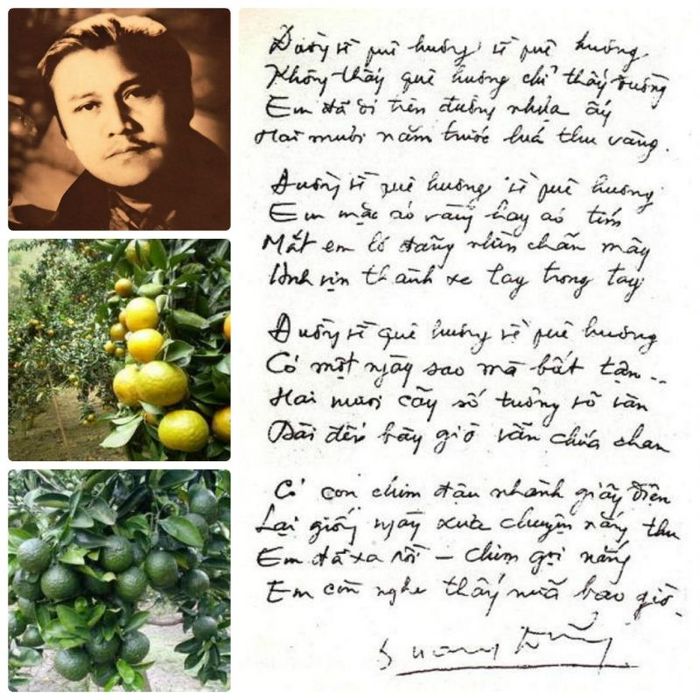 Đường về quê hương về quê hương
Không thấy quê hương chỉ thấy đường
Em đã đi trên đường nhựa ấy
Hai mươi năm trước lúa thu vàng.
Đường về quê hương về quê hương
Em mặc áo vàng hay áo tím
Mắt em lơ đãng nhìn chân mây
Anh vịn thành xe tay trong tay
Đường về quê hương về quê hương
Có một ngày sao mà bất tận..
Hai mươi cây số tưởng vô vàn
Dài đến bây giờ vẫn chứa chan
Có con chim đậu nhành giây điện
Lại giống ngày xưa chuyện nắng thu
Em đã xa rồi – chim gọi nắng
Em còn nghe thấy nữa bao giờ.